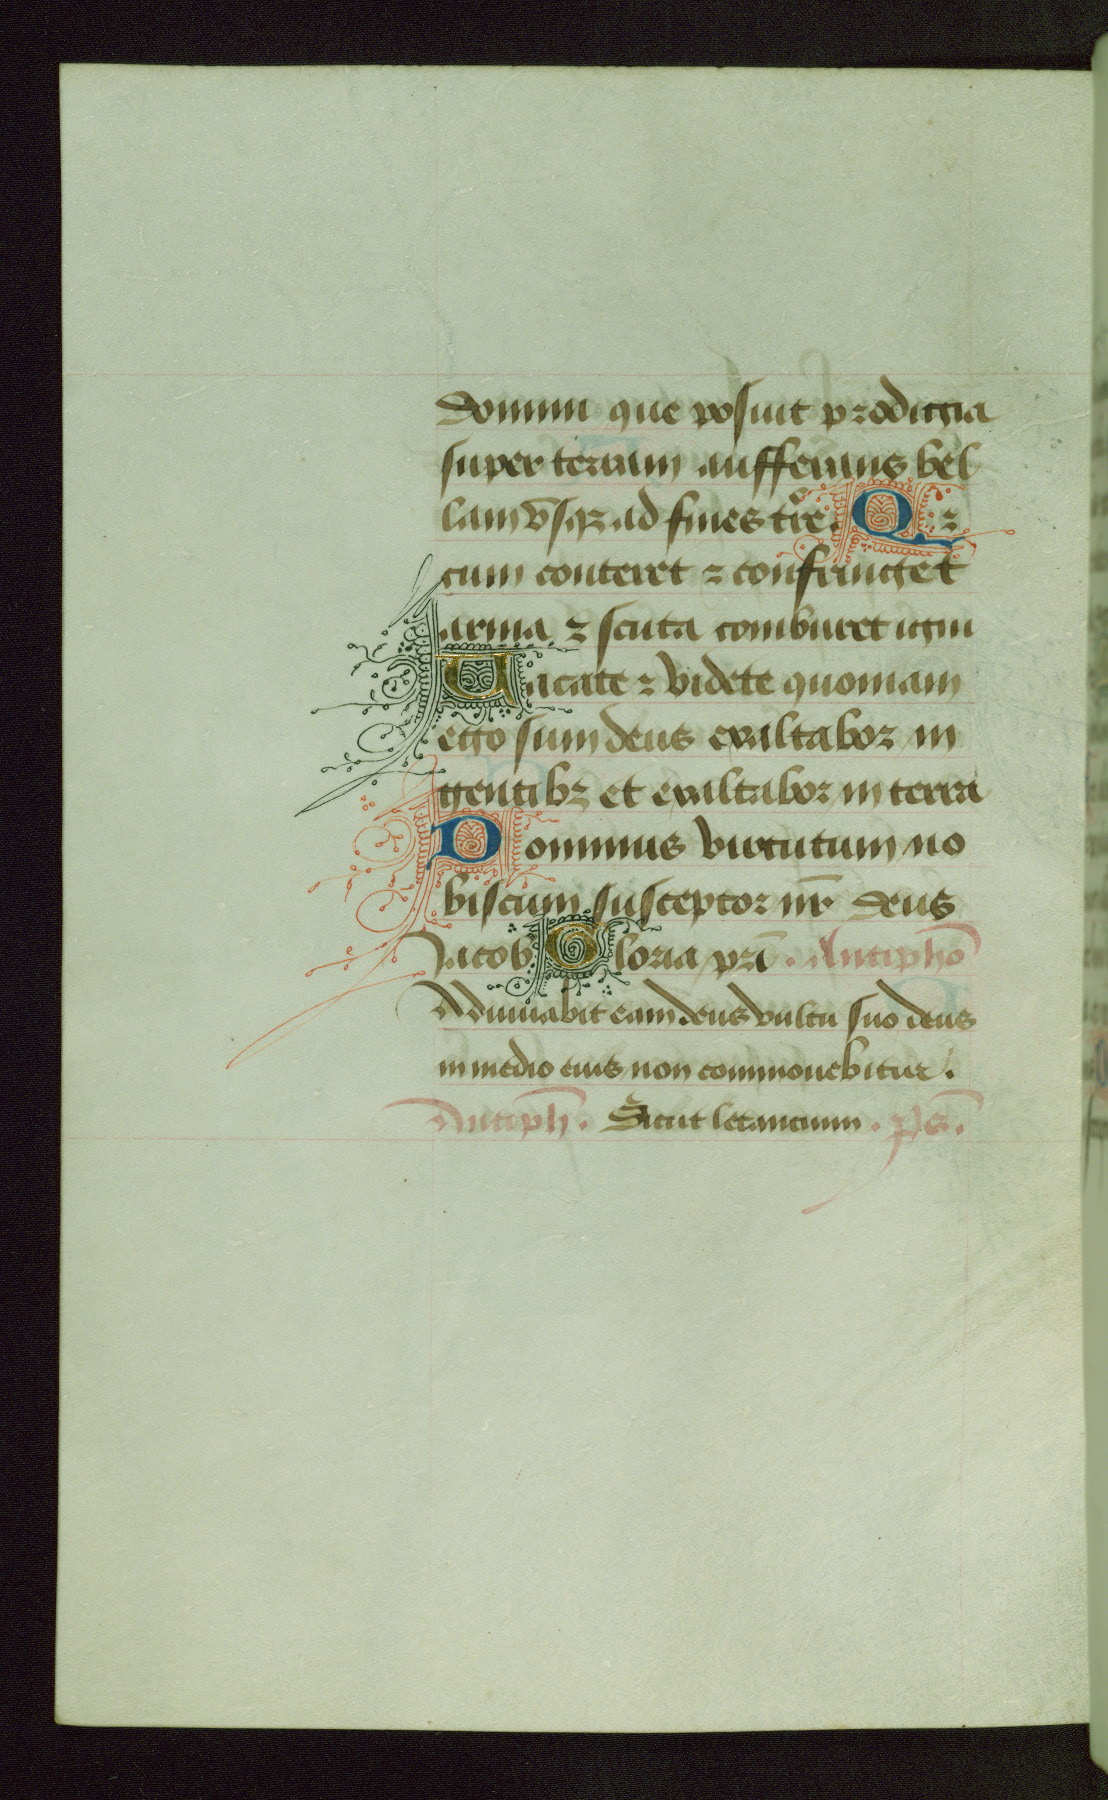 domini que posuit prodigia
super terram aufferens bel
lam vſqz ad fines tr̄e. A ꝛ
cum conteret ⁊ confringet
arma ⁊ scuta comburet igni
Uacate ⁊ videte quoniam
ego sum deus exaltabor in
gentibz et exaltabor in terra
Dominus virtutum no
biscum susceptor nr̄ deus
Iacob Gloria pr̄i. Antiphō
Adiuuabit eam deus vultu suo deus
in medio eius non commouebitur.
Antiph̄. Sicut letancium. ps̄.